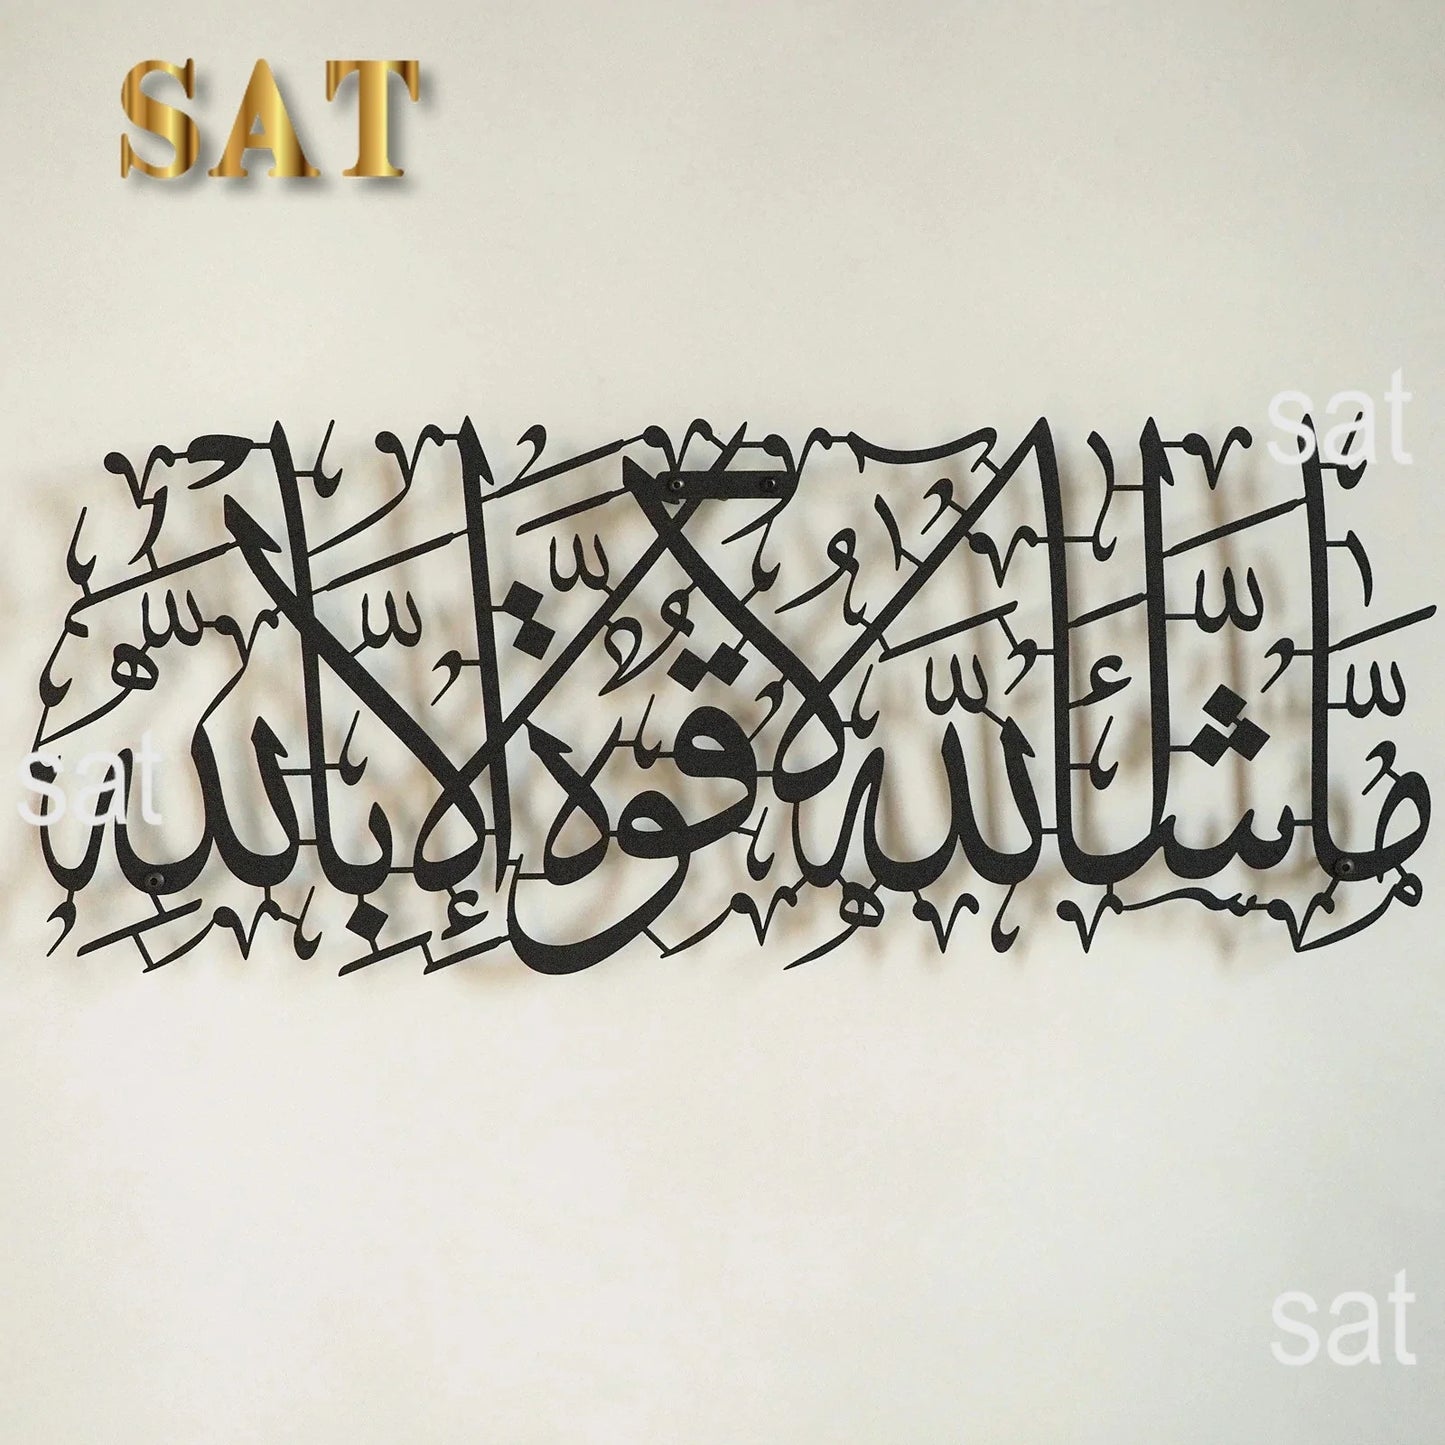 SAT
sat
ما شاء الله لا قوة إلا بالله
sat
sat